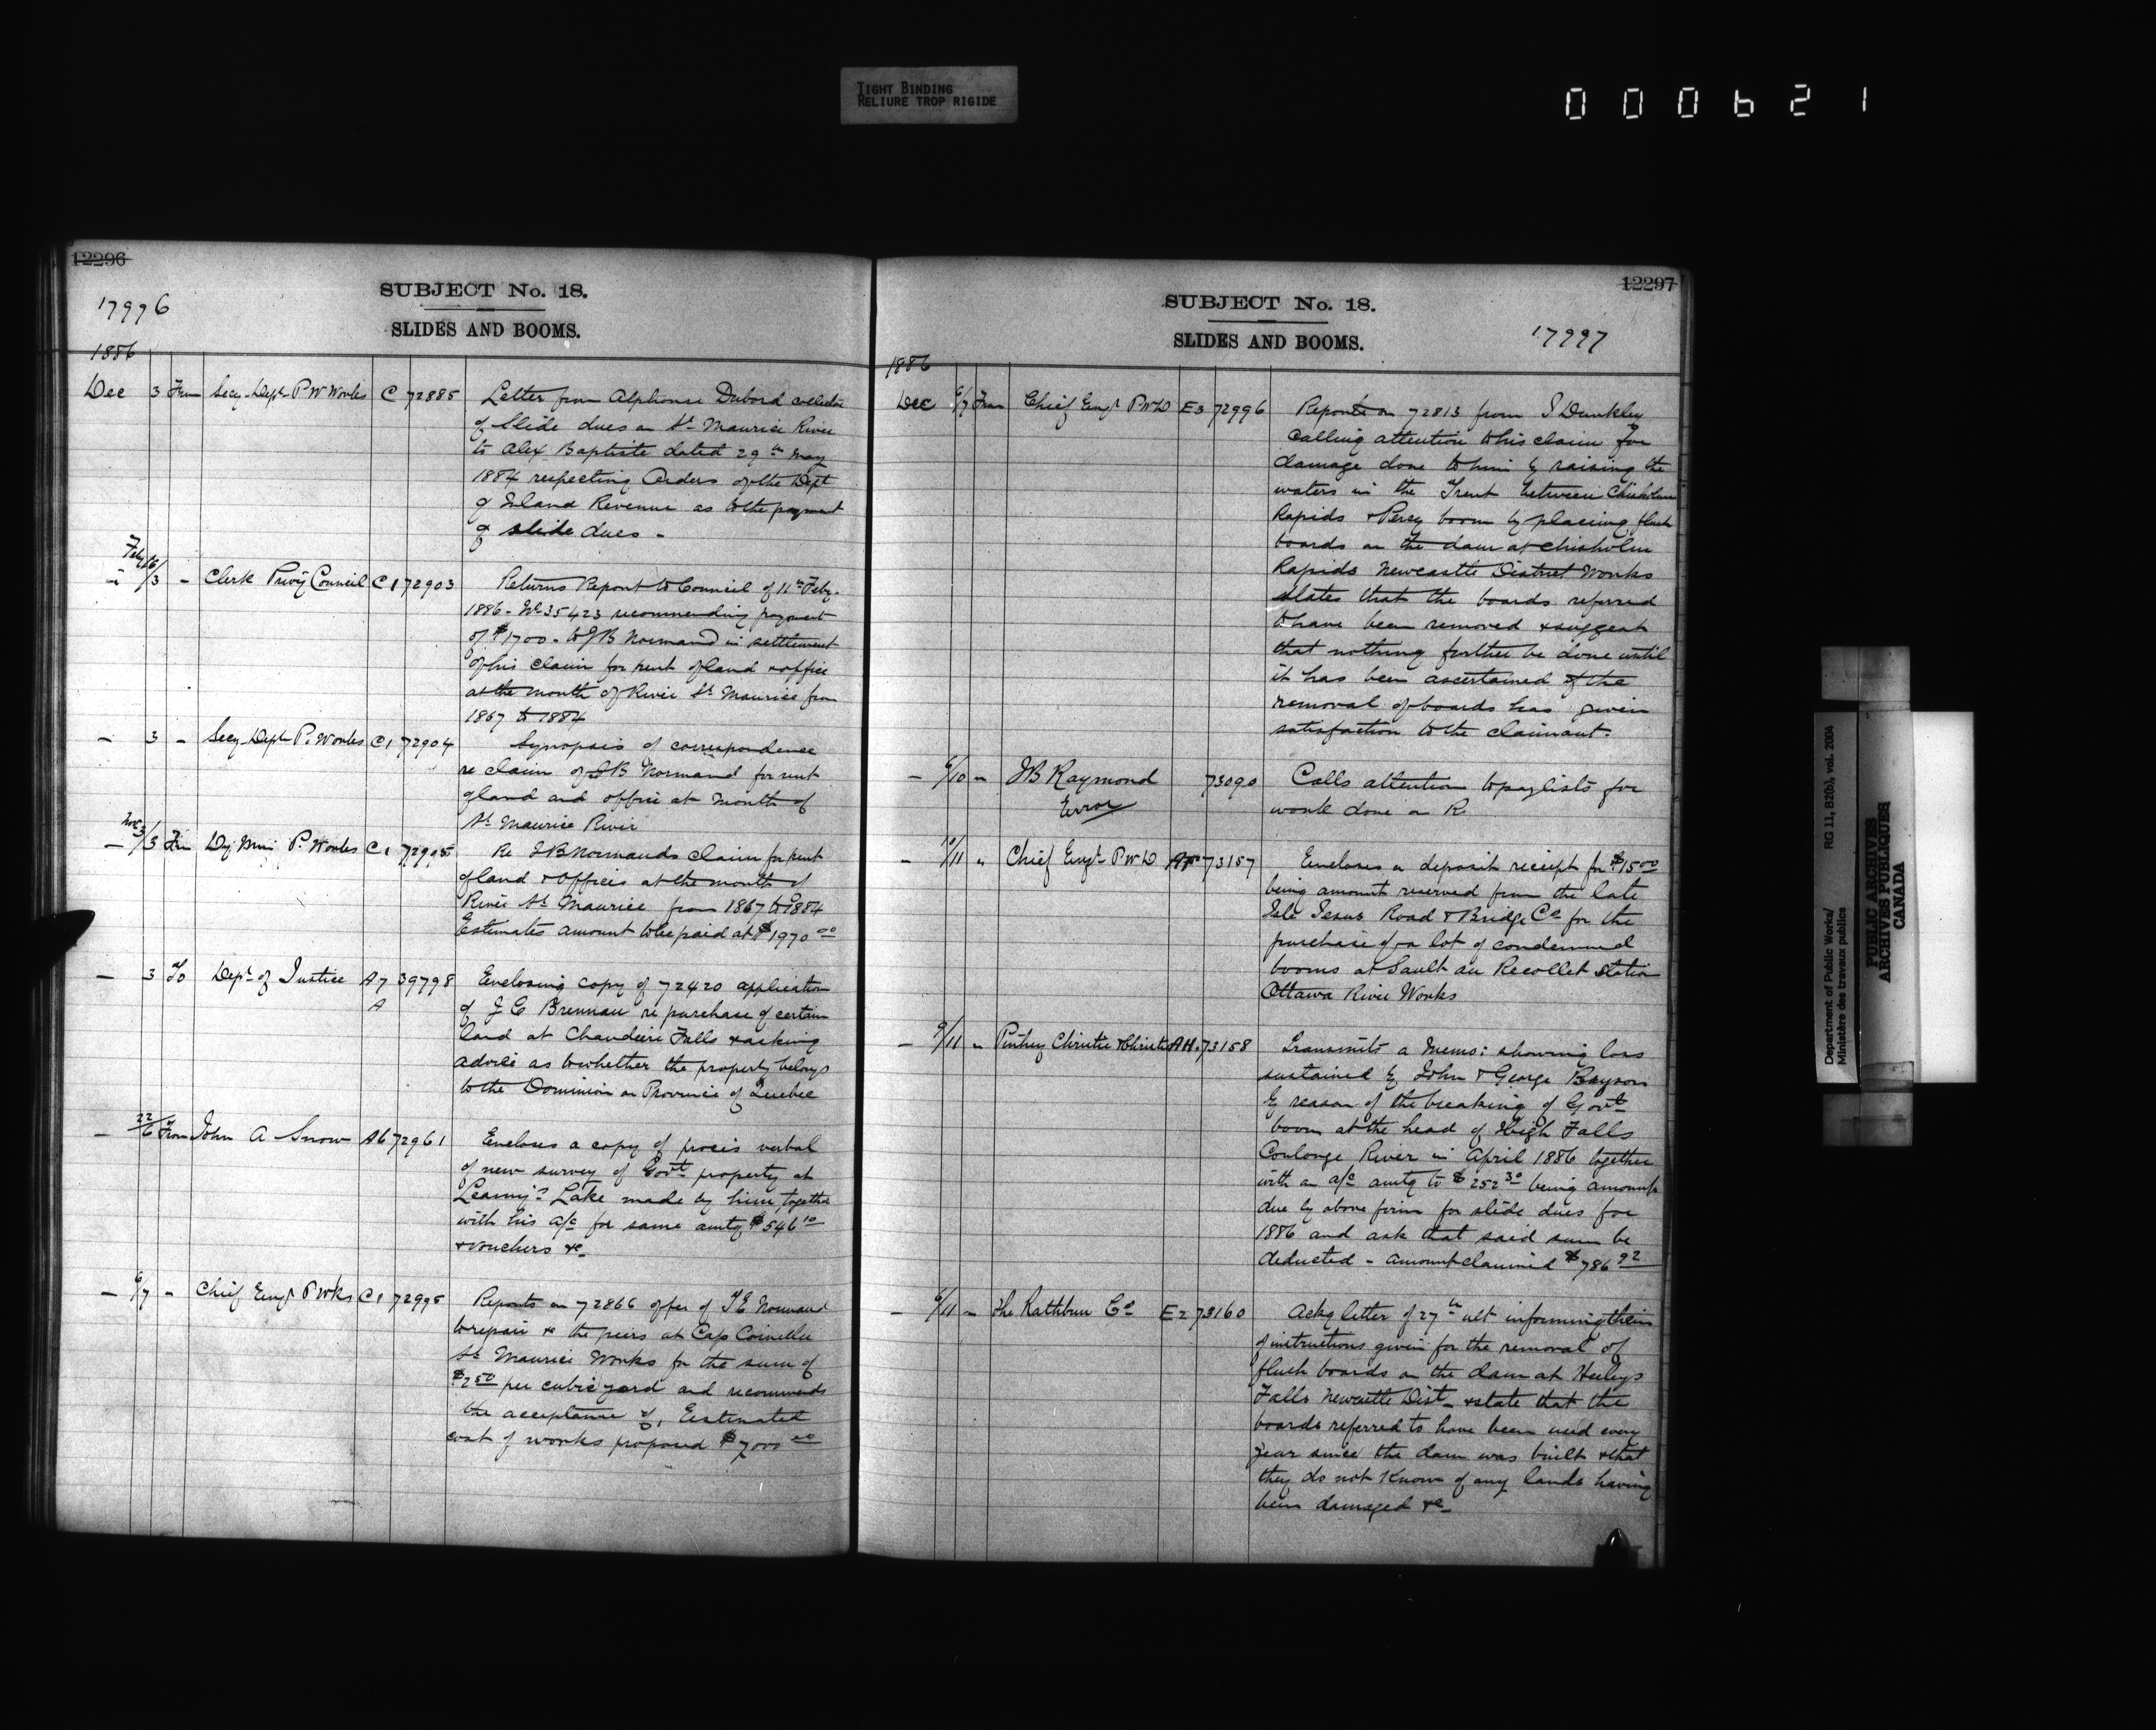 TIGHT BINDING
RELIURE TROP RIGIDE
000621
12296
SUBJECT No. 18.
17996
SLIDES AND BOOMS.
1886
Dec 3 From Secy. Dept P W Works C 72885
Letter from Alphonse Dubord collector
of Slide dues on St. Maurice River
to Alex Baptiste dated 29th May
1884 respecting Orders of the Dept
of Inland Revenue as to the payment
of slide dues -
Feby 16/3 - Clerk Privy Council C1 72903
Returns Report to Council of 11th Feby.
1886. No 35423 recommending payment
of $1700. to J B Normand in settlement
of his claim for rent of land & office
at the mouth of River St. Maurice from
1867 to 1884
- 3 - Secy. Dept P. Works C1 72904
Synopsis of correspondence
re claim of J B Normand for rent
of land and office at mouth of
St. Maurice River
- Nov 3/3 Frm Dy. Min P. Works C1 72905
Re J B Normands claim for rent
of land & offices at the mouth of
River St. Maurice from 1867 to 1884
Estimates amount to be paid at $1970 00
- 3 To Dept. of Justice A7 39798
A
Enclosing copy of 72420 application
of J C Brennan re purchase of certain
land at Chaudiere Falls & asking
advice as to whether the property belongs
to the Dominion or Province of Quebec
- 22/6 From John A Snow A6 72961
Encloses a copy of proces verbal
of new survey of Govt. property at
Leamy's Lake made by him together
with his a/c for same amtg $546 10
& vouchers &c
- 6/7 - Chief Engr P Wks C1 72995
Reports on 72866 offer of Normand
to repair & the piers at Cap
St. Maurice Works for the sum of
$2 50 per cubic yard and recommends
the acceptance of, Estimated
cost of works proposed $7000 00
12297
SUBJECT No. 18.
SLIDES AND BOOMS.
17997
1886
Dec 6/7 From Chief Engr P W D E3 72996
Reports on 72813 from S Dunkley
calling attention to his claim for
damage done to him by raising the
waters in the Trent between Chisholm
Rapids & Percy boom by placing flush
boards on the dam at Chisholm
Rapids Newcastle District Works
States that the boards referred
to have been removed & suggest
that nothing further be done until
it has been ascertained if the
removal of boards has given
satisfaction to the claimant.
- 6/10 - J B Raymond 73090
Error
Calls attention to paylists for
work done on R
- 10/11 " Chief Engr P W D 73157
Encloses a deposit receipt for $15 00
being amount received from the late
Isle Jesus Road & Bridge Co for the
purchase of a lot of condemned
booms at Sault au Recollet station
Ottawa River Works
- 9/11 - Pinhey Christie & Christie AH. 73158
Transmits a Memo: showing loss
sustained by John & George Bryson
by reason of the breaking of Govt.
boom at the head of High Falls
Coulonge River in April 1886 together
with an a/c amtg to $252 30 being amount
due by above firm for slide dues for
1886 and ask that said sum be
deducted - amount claimed $786 92
- 9/11 - The Rathbun Co E2 73160
Ackg letter of 27th ult informing them
of instructions given for the removal of
flush boards on the dam at Heeleys
Falls Newcastle Dist. & state that the
boards referred to have been used every
year since the dam was built & that
they do not know of any lands having
been damaged &c
Department of Public Works/
Ministère des travaux publics
RG 11, B2(b), vol. 2004
PUBLIC ARCHIVES
ARCHIVES PUBLIQUES
CANADA